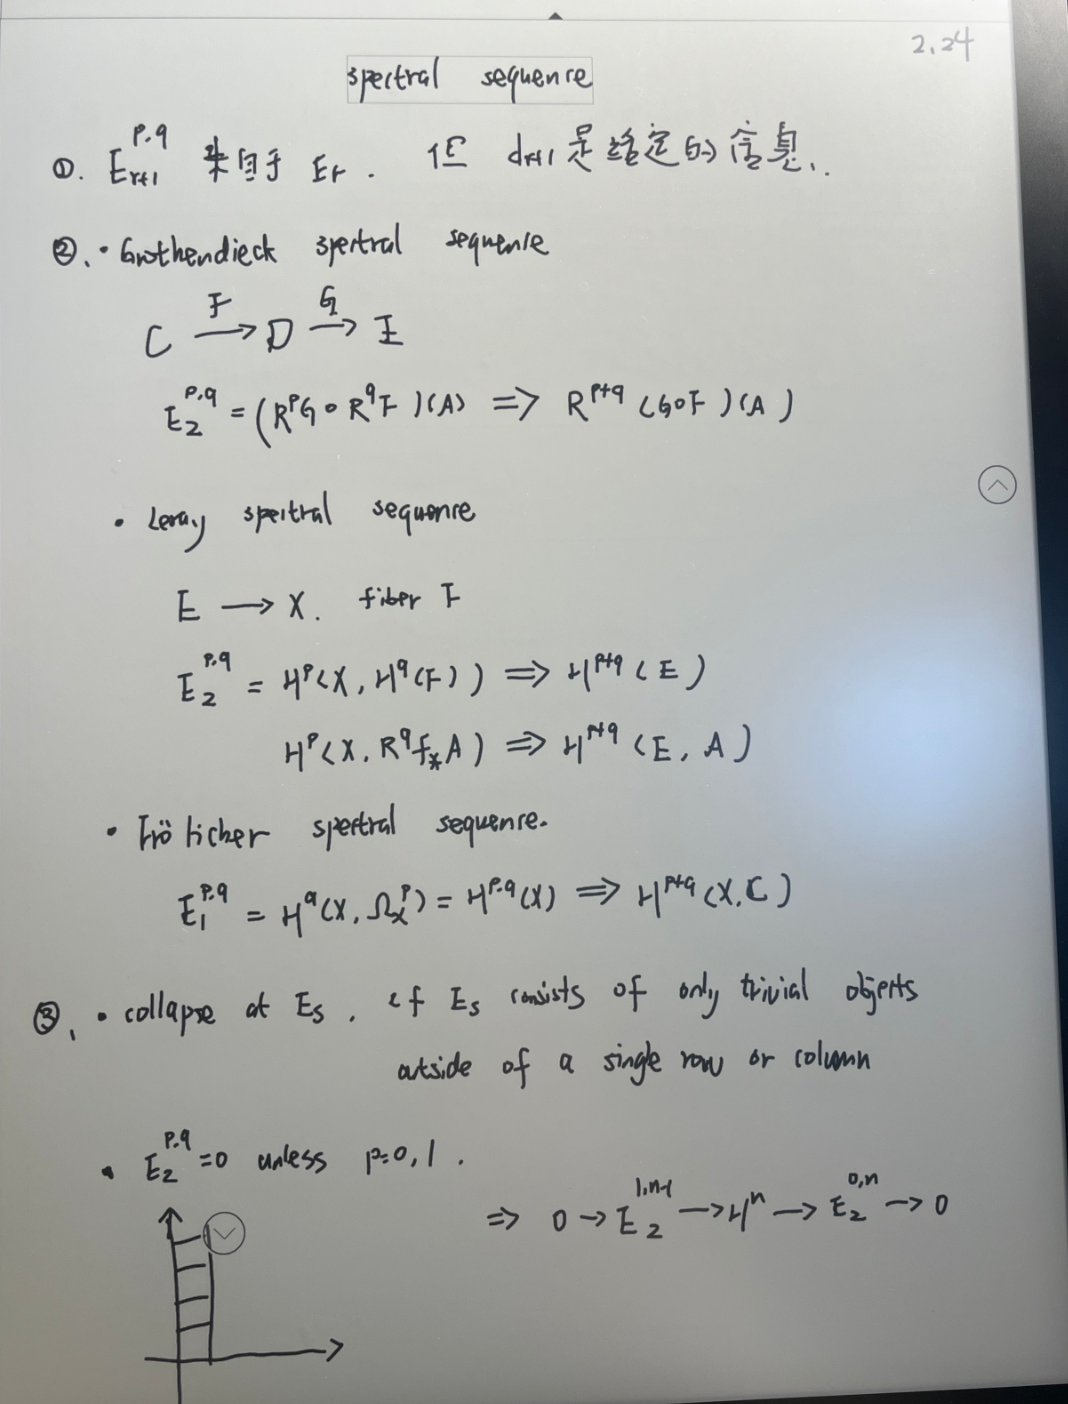 2.24
spectral sequence
①. E_{r+1}^{p.q} 来自于 E_r. 但 d_{r+1} 是给定的信息.
②. · Grothendieck spectral sequence
C \xrightarrow{F} D \xrightarrow{G} E
E_2^{p.q} = (R^pG ∘ R^qF)(A) ⇒ R^{p+q}(G∘F)(A)
· Leray spectral sequence
E → X. fiber F
E_2^{p.q} = H^p(X, H^q(F)) ⇒ H^{p+q}(E)
H^p(X, R^q f_* A) ⇒ H^{p+q}(E, A)
· Frölicher spectral sequence.
E_1^{p.q} = H^q(X, Ω_X^p) = H^{p.q}(X) ⇒ H^{p+q}(X, C)
③. · collapse at E_s. if E_s consists of only trivial objects
outside of a single row or column
· E_2^{p.q} = 0 unless p=0,1.
⇒ 0 → E_2^{1,n-1} → H^n → E_2^{0,n} → 0